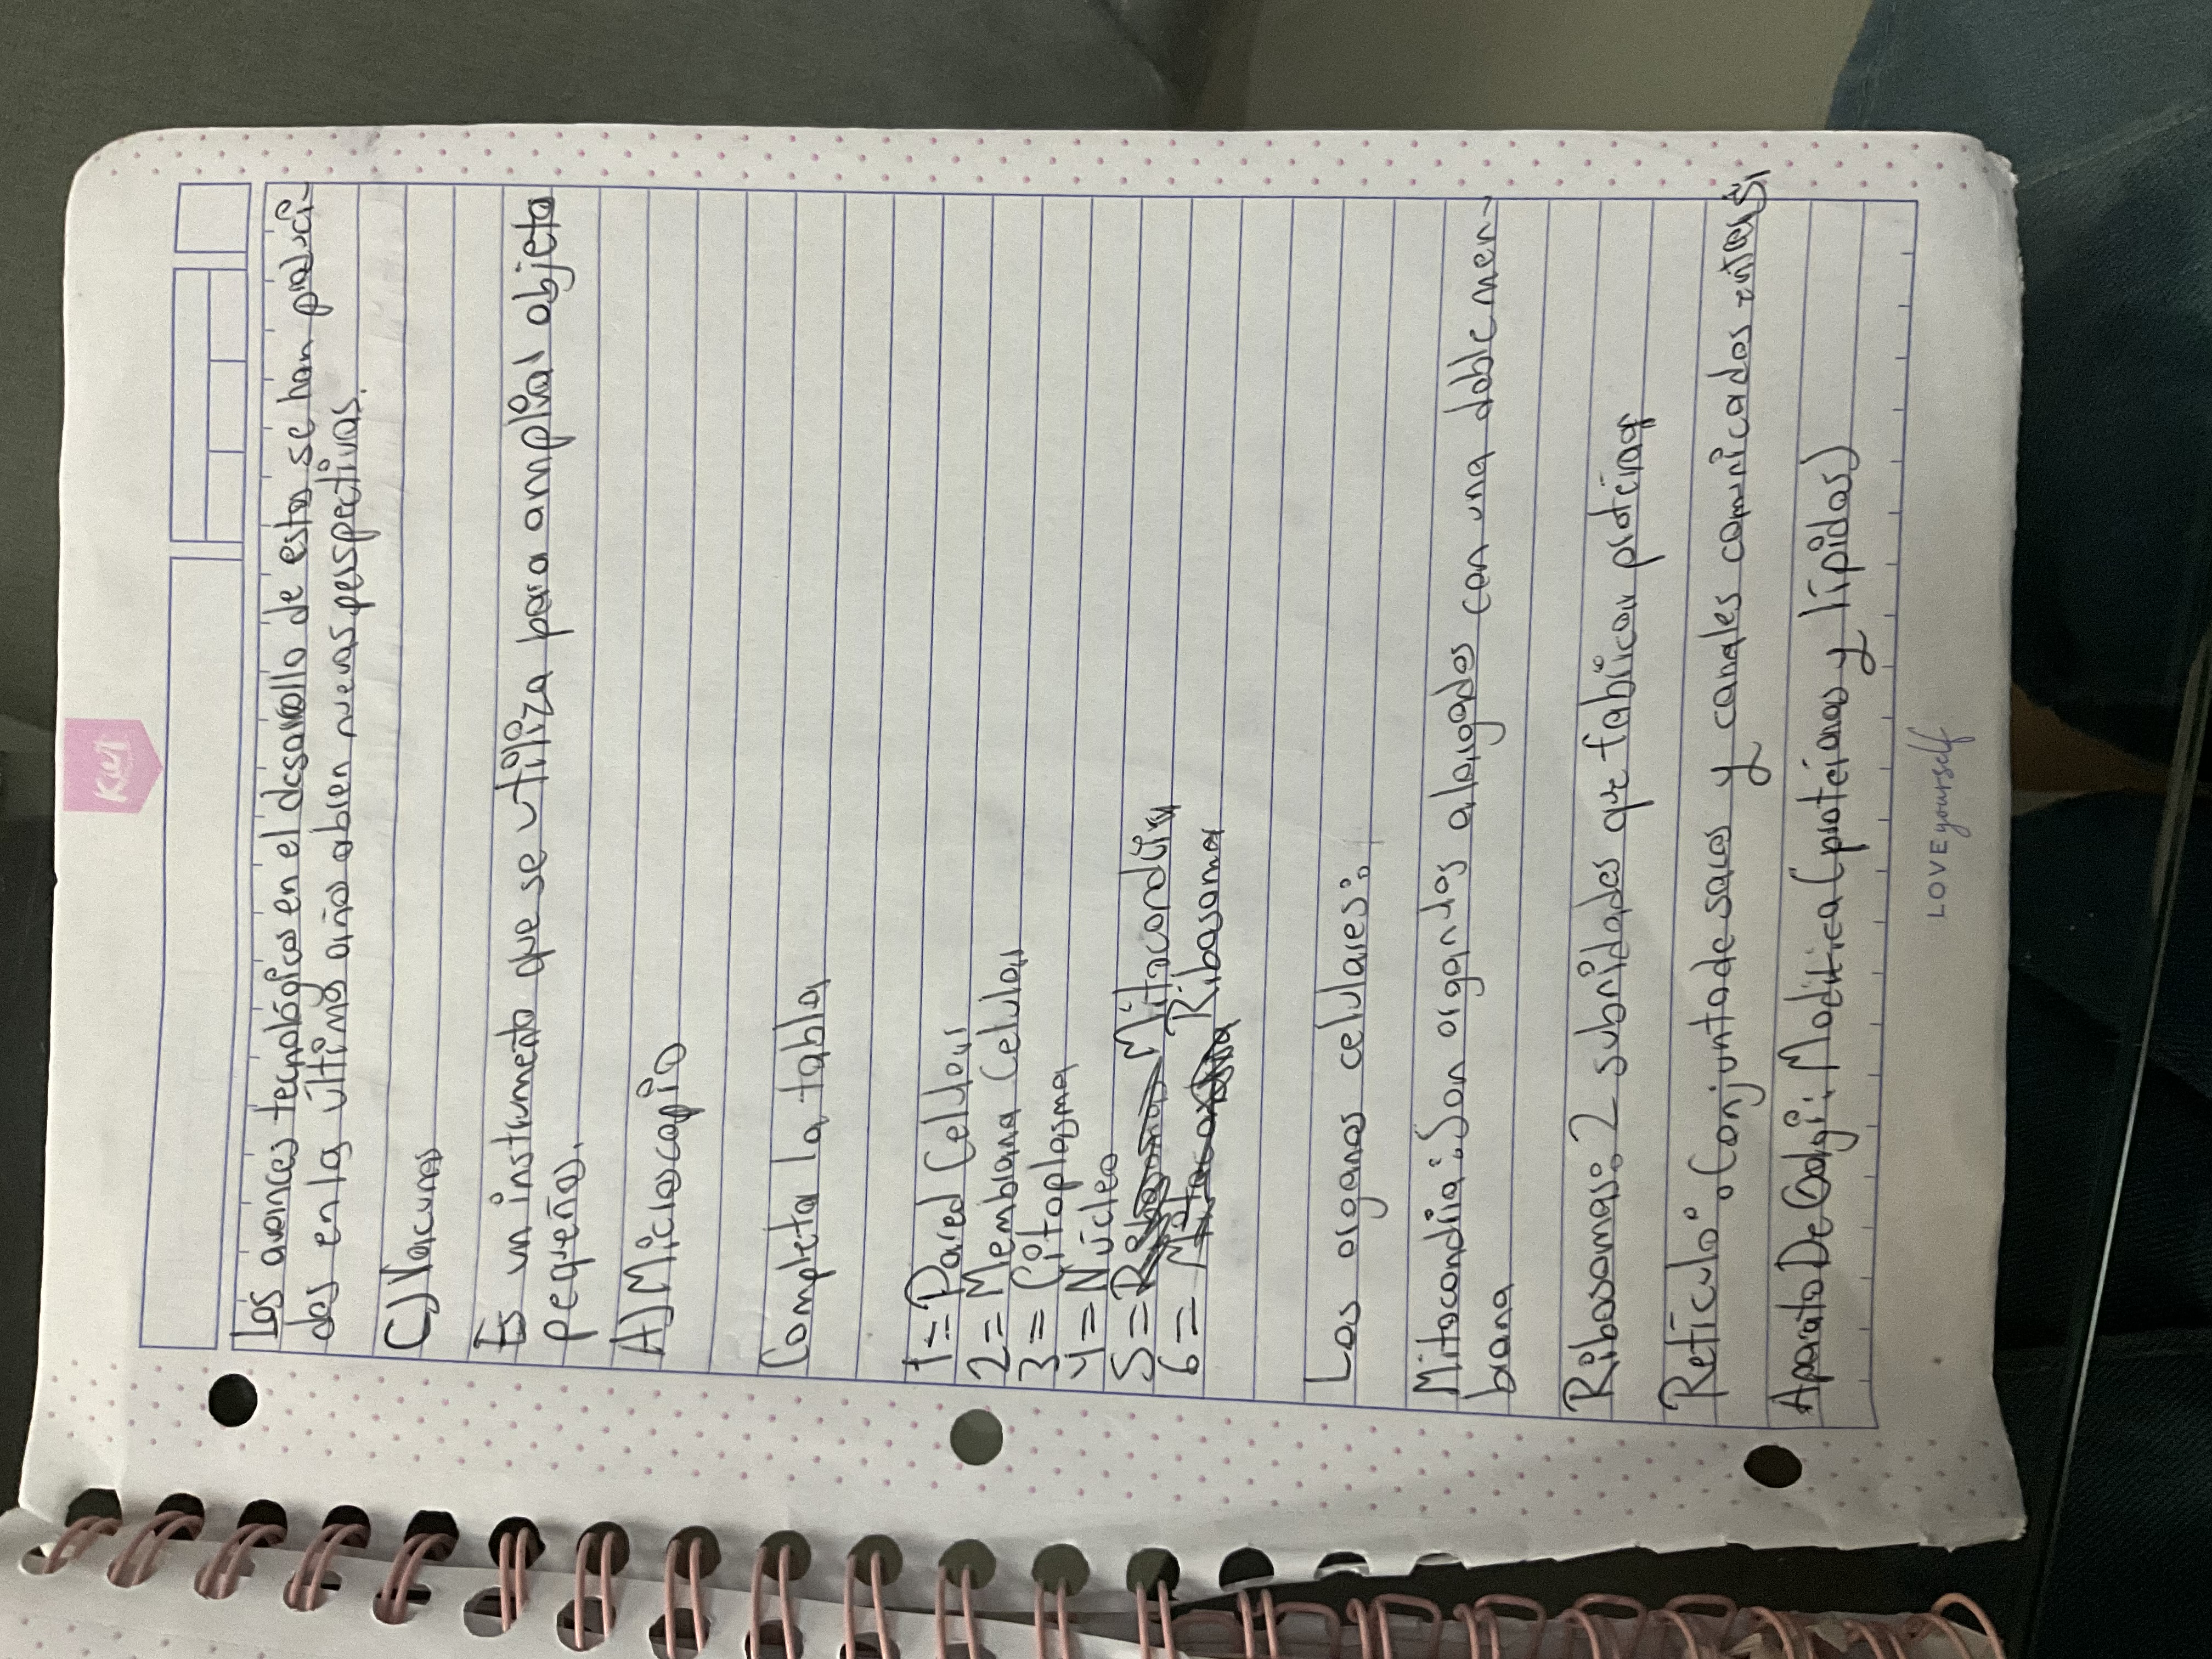 Kiut
Los avances tecnológicos en el desarrollo de estas se han produci-
dos en la último año abren nuevas perspectivas.
C) Vacunas
Es un instrumento que se utiliza para ampliar objeto
pequeños.
A) Microscopio
Completa la tabla
1 = Pared Celular
2 = Membrana Celular
3 = Citoplasma
4 = Núcleo
5 = Mitocondria
6 = Ribosoma
Los organos celulares:
Mitocondria: Son organulos alargados con una doble men-
brana
Ribosomas: 2 subnidades que fabrican proteínas
Retículo: Conjunto de sacos y canales comunicados entre si
Aparato De Golgi: Modifica (proteínas y lípidos)
LOVE yourself